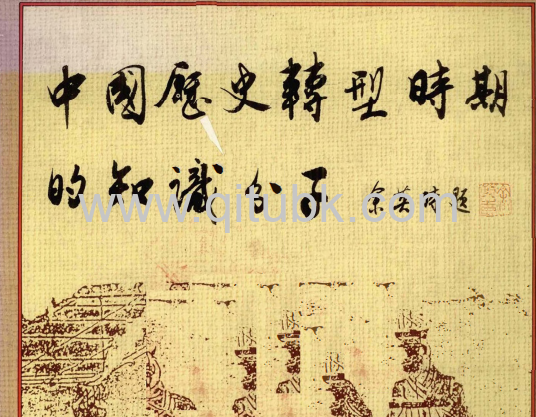 中國歷史轉型時期
的知識分子 余英時題
www.qitubk.com